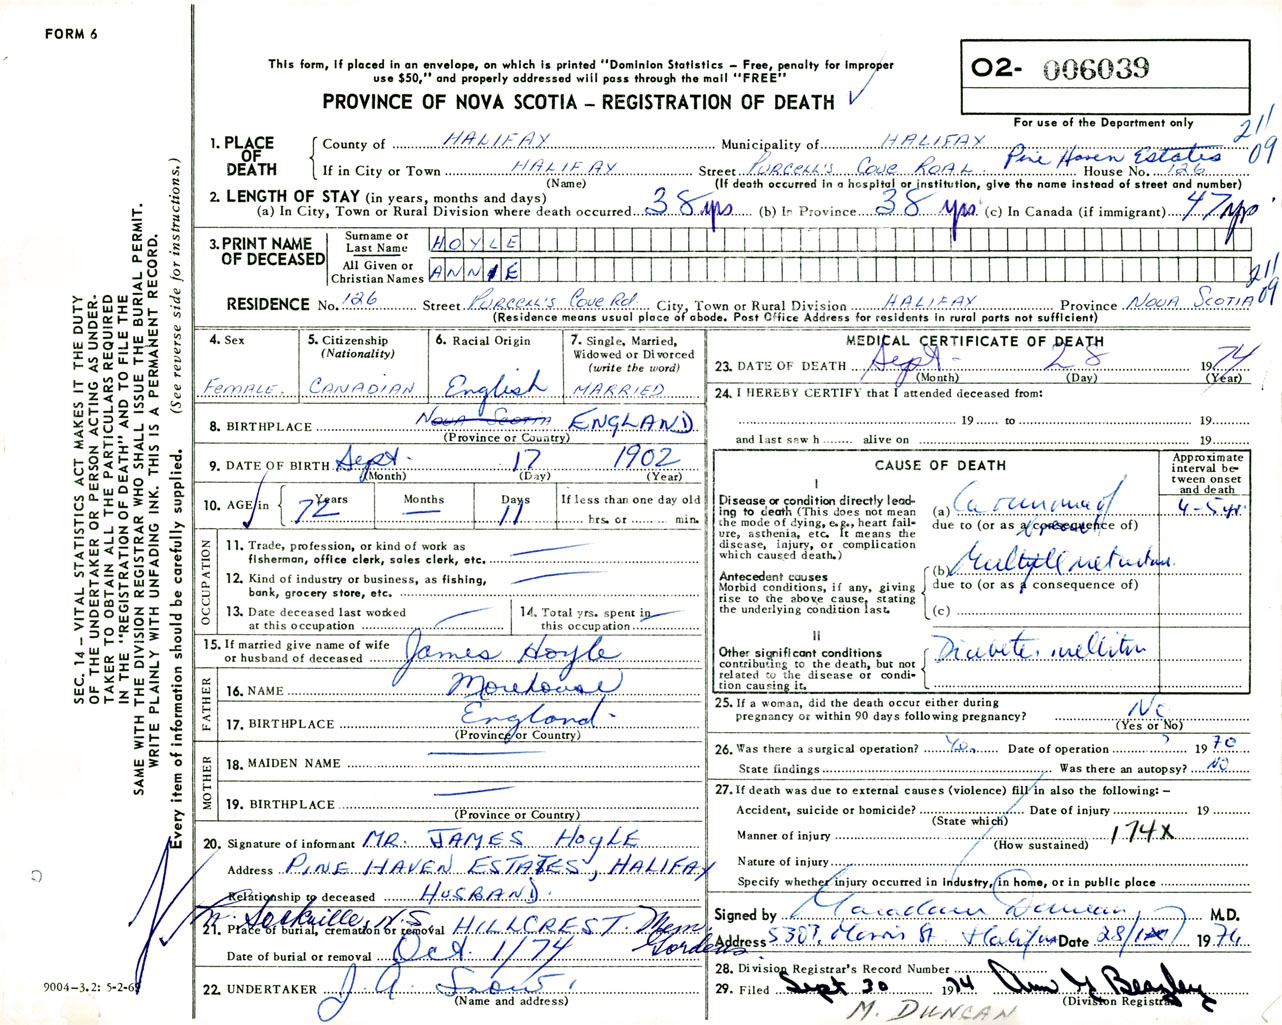 FORM 6
This form, if placed in an envelope, on which is printed "Dominion Statistics – Free, penalty for improper
use $50," and properly addressed will pass through the mail "FREE"
PROVINCE OF NOVA SCOTIA – REGISTRATION OF DEATH
02- 006039
For use of the Department only
211
09
SEC. 14 – VITAL STATISTICS ACT MAKES IT THE DUTY
OF THE UNDERTAKER OR PERSON ACTING AS UNDER-
TAKER TO OBTAIN ALL THE PARTICULARS REQUIRED
IN THE "REGISTRATION OF DEATH" AND TO FILE THE
SAME WITH THE DIVISION REGISTRAR WHO SHALL ISSUE THE BURIAL PERMIT.
WRITE PLAINLY WITH UNFADING INK. THIS IS A PERMANENT RECORD.
Every item of information should be carefully supplied. (See reverse side for instructions.)
1. PLACE OF DEATH
County of HALIFAX Municipality of HALIFAX
Pine Haven Estates
If in City or Town HALIFAX Street PURCELL'S COVE ROAD House No. 126
(Name) (If death occurred in a hospital or institution, give the name instead of street and number)
2. LENGTH OF STAY (in years, months and days)
(a) In City, Town or Rural Division where death occurred 38 yrs (b) In Province 38 yrs (c) In Canada (if immigrant) 47 yrs
3. PRINT NAME OF DECEASED
Surname or Last Name HOYLE
All Given or Christian Names ANNIE
211
09
RESIDENCE No. 126 Street PURCELL'S COVE RD. City, Town or Rural Division HALIFAX Province NOVA SCOTIA
(Residence means usual place of abode. Post Office Address for residents in rural parts not sufficient)
4. Sex
FEMALE.
5. Citizenship
(Nationality)
CANADIAN
6. Racial Origin
English
7. Single, Married,
Widowed or Divorced
(write the word)
MARRIED
8. BIRTHPLACE NOVA SCOTIA ENGLAND
(Province or Country)
9. DATE OF BIRTH Sept. 17 1902
(Month) (Day) (Year)
10. AGE in Years 72 Months — Days 11 If less than one day old
hrs. or min.
OCCUPATION
11. Trade, profession, or kind of work as
fisherman, office clerk, sales clerk, etc. —
12. Kind of industry or business, as fishing,
bank, grocery store, etc. —
13. Date deceased last worked
at this occupation —
14. Total yrs. spent in
this occupation —
15. If married give name of wife
or husband of deceased James Hoyle
FATHER
16. NAME Morehouse
17. BIRTHPLACE England.
(Province or Country)
MOTHER
18. MAIDEN NAME —
19. BIRTHPLACE —
(Province or Country)
20. Signature of informant MR. JAMES HOYLE
Address PINE HAVEN ESTATES, HALIFAX
Relationship to deceased HUSBAND.
Sackville, N.S
21. Place of burial, cremation or removal HILLCREST Mem. Gardens
Date of burial or removal Oct. 1/74
22. UNDERTAKER J. A. Snow
(Name and address)
9004-3.2: 5-2-69
MEDICAL CERTIFICATE OF DEATH
23. DATE OF DEATH Sept 28 1974
(Month) (Day) (Year)
24. I HEREBY CERTIFY that I attended deceased from:
19 to 19
and last saw h alive on 19
CAUSE OF DEATH
Approximate
interval be-
tween onset
and death
I
Disease or condition directly lead-
ing to death (This does not mean
the mode of dying, e.g., heart fail-
ure, asthenia, etc. It means the
disease, injury, or complication
which caused death.)
(a) Carcinoma of breast 4-5 yr.
due to (or as a consequence of)
Antecedent causes
Morbid conditions, if any, giving
rise to the above cause, stating
the underlying condition last.
(b) Multiple metastases
due to (or as a consequence of)
(c)
II
Other significant conditions
contributing to the death, but not
related to the disease or condi-
tion causing it.
Diabetes mellitus
25. If a woman, did the death occur either during
pregnancy or within 90 days following pregnancy? No
(Yes or No)
26. Was there a surgical operation? Yes. Date of operation ? 1970
State findings Was there an autopsy? NO
27. If death was due to external causes (violence) fill in also the following: –
Accident, suicide or homicide? Date of injury 19
(State which)
Manner of injury 174X
(How sustained)
Nature of injury
Specify whether injury occurred in Industry, in home, or in public place
Signed by Duncan M.D.
Address 5307, Morris St. Halifax Date 28/ 1974
28. Division Registrar's Record Number
29. Filed Sept 30 1974 Ann Beazley
(Division Registrar)
M. DUNCAN